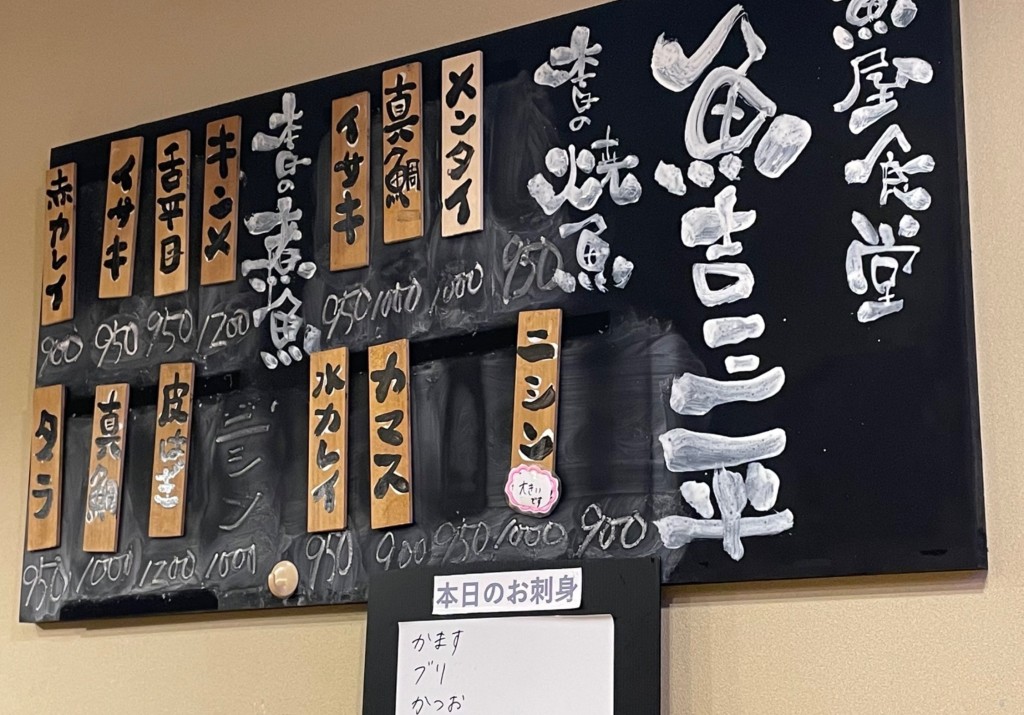 魚屋食堂
魚吉三平
本日の焼魚
950
メンタイ
1000
真鯛
1000
イサキ
950
900
ニシン
大きいです
1000
950
カマス
900
水カレイ
950
本日の煮魚
キンメ
1200
舌平目
950
イサキ
950
赤カレイ
900
ニシン
1000
皮はぎ
1200
真鯛
1000
タラ
950
本日のお刺身
かます
ブリ
かつお